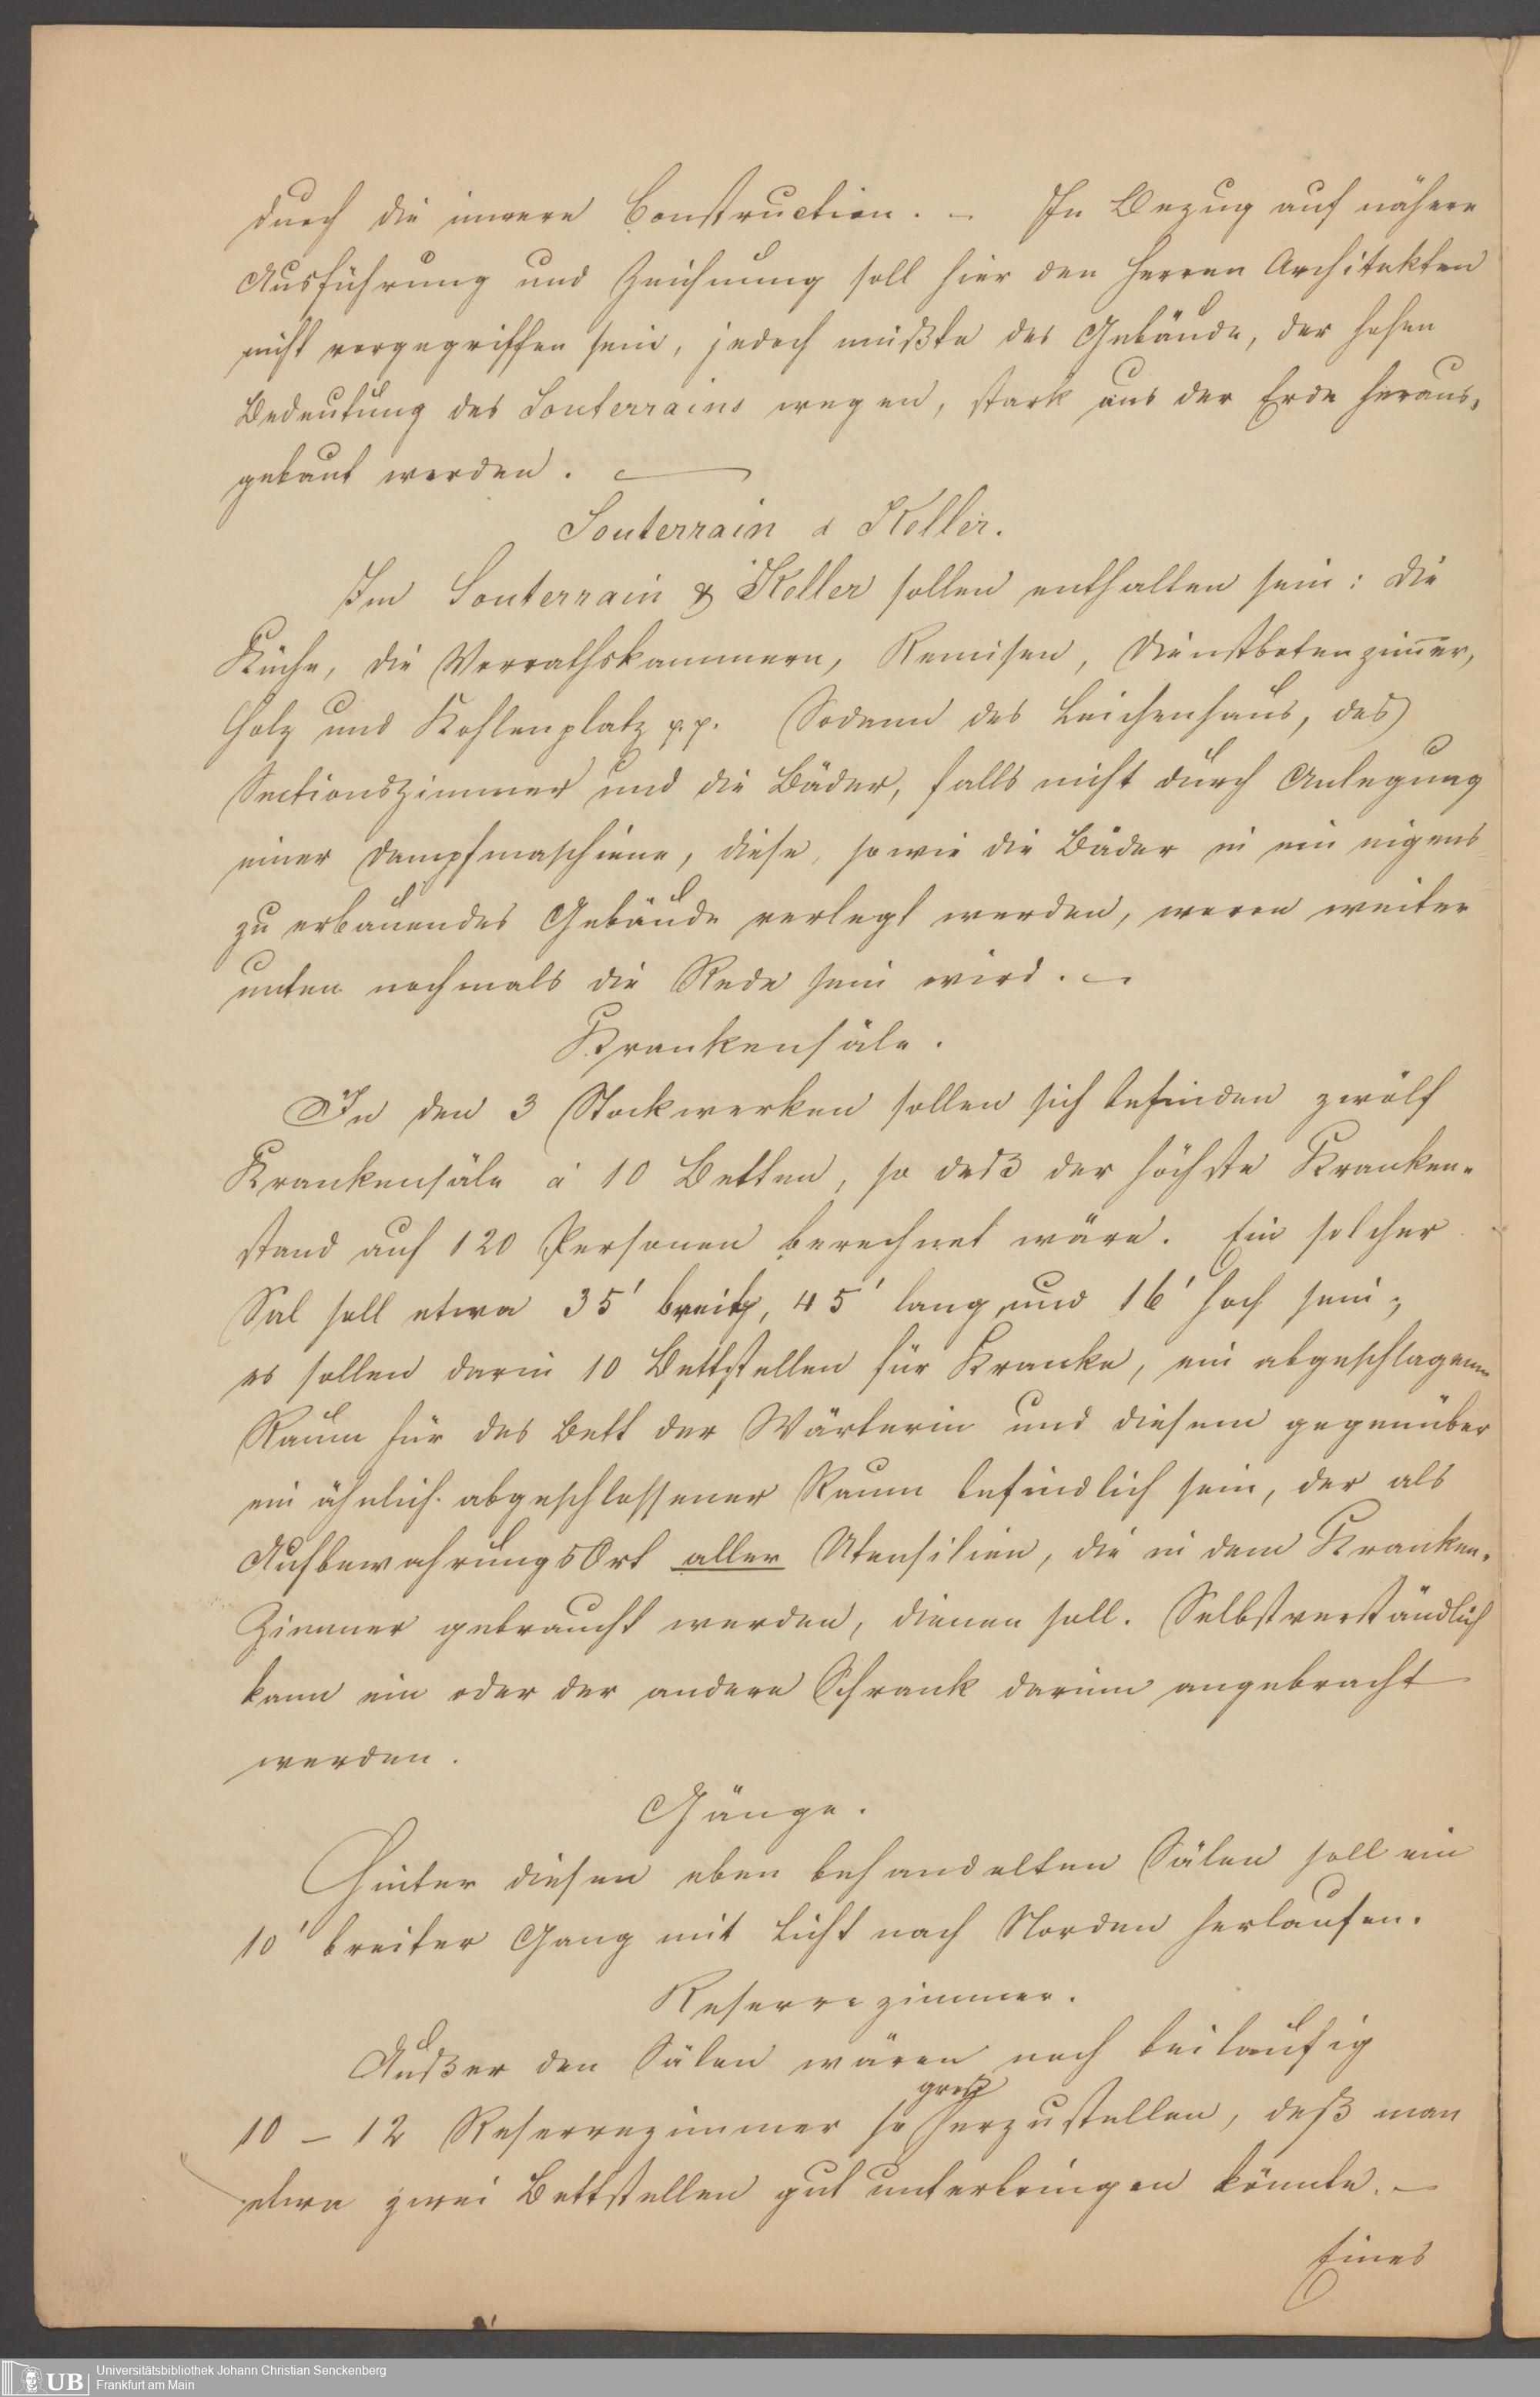 durch die innere Construction. – In Bezug auf nähere
Ausführung und Zeichnung soll hier den Herren Architekten
nicht vorgegriffen sein, jedoch müßte das Gebäude, der hohen
Bedeutung des Souterrains wegen, stark aus der Erde heraus-
gebaut werden. —
Souterrain & Keller.
Im Souterrain & Keller sollen enthalten sein: die
Küche, die Vorrathskammern, Remisen, Dienstbotenzim̄er,
Holz und Kohlenplatz p.p. Sodann das Leichenhaus, das
Sectionszimmer und die Bäder, falls nicht durch Anlegung
einer Dampfmaschiene, diese, sowie die Bäder in ein eigens
zu erbauendes Gebäude verlegt werden, wovon weiter
unten nochmals die Rede sein wird. –
Krankensäle.
In den 3 Stockwerken sollen sich befinden zwölf
Krankensäle à 10 Betten, so daß der höchste Kranken-
stand auf 120 Personen berechnet wäre. Ein solcher
Sal soll etwa 35' breit, 45' lang und 16' hoch sein;
es sollen darin 10 Bettstellen für Kranke, ein abgeschlagener
Raum für das Bett der Wärterin und diesem gegenüber
ein ähnlich abgeschlossener Raum befindlich sein, der als
AufbewahrungsOrt aller Utensilien, die in dem Kranken-
Zimmer gebraucht werden, dienen soll. Selbstverständlich
kann ein oder der andere Schrank darinn angebracht
werden.
Gänge.
Hinter diesen eben behandelten Sälen soll ein
10' breiter Gang mit Licht nach Norden herlaufen.
Reservezimmer.
Außer den Sälen wären noch beiläufig
groß
10 – 12 Reservezimmer so herzustellen, daß man
etwa zwei Bettstellen gut unterbringen könnte. –
Eines
UB
Universitätsbibliothek Johann Christian Senckenberg
Frankfurt am Main